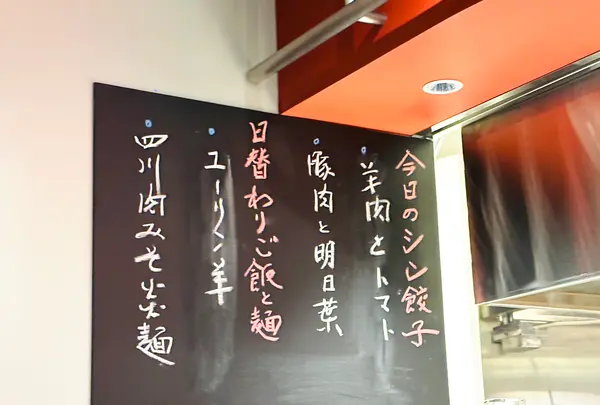 今日のシン餃子
・羊肉とトマト
・豚肉と明日葉
日替わりご飯と麺
・ユーリン羊
・四川肉みそ炎麺